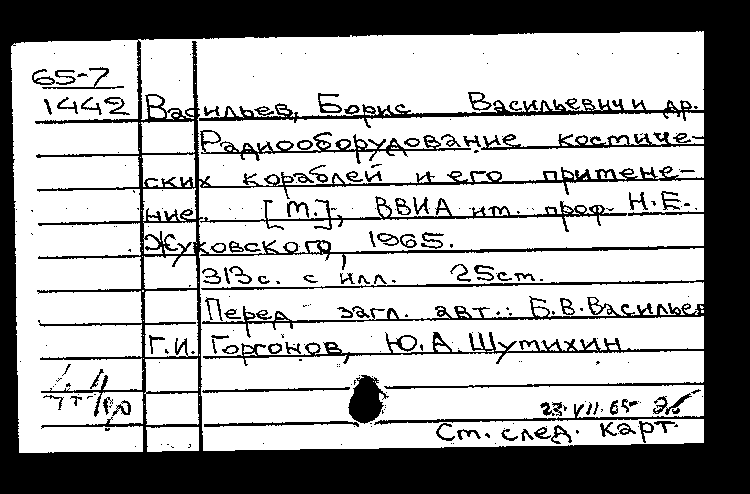 65-7
1442 Васильев, Борис Васильевич и др.
Радиооборудование космиче-
ских кораблей и его примене-
ние. [М.], ВВИА им. проф. Н.Е.
Жуковского, 1965.
313 с. с илл. 25 см.
Перед загл. авт.: Б.В. Васильев
Г.И. Горгонов, Ю.А. Шутихин
23.VII.65
См. след. карт.